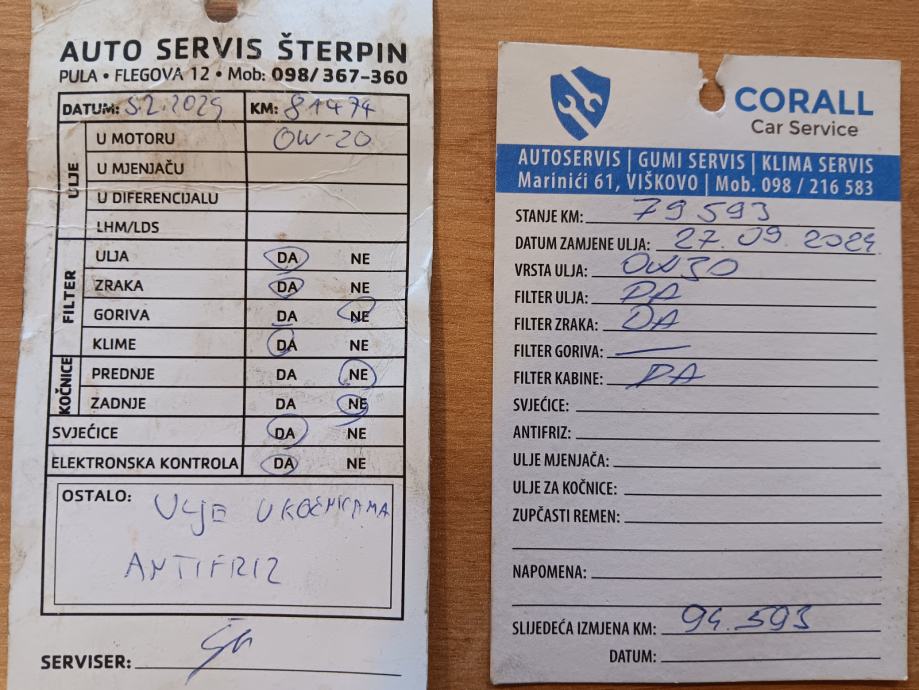 AUTO SERVIS ŠTERPIN
PULA • FLEGOVA 12 • Mob: 098/367-360
DATUM: 5.2.2025 KM: 81474
ULJE
U MOTORU 0W-20
U MJENJAČU
U DIFERENCIJALU
LHM/LDS
FILTER
ULJA DA NE
ZRAKA DA NE
GORIVA DA NE
KLIME DA NE
KOČNICE
PREDNJE DA NE
ZADNJE DA NE
SVJEĆICE DA NE
ELEKTRONSKA KONTROLA DA NE
OSTALO: ULJE U KOČNICAMA
ANTIFRIZ
SERVISER:
CORALL
Car Service
AUTOSERVIS | GUMI SERVIS | KLIMA SERVIS
Marinići 61, VIŠKOVO | Mob. 098 / 216 583
STANJE KM: 79593
DATUM ZAMJENE ULJA: 27.09.2024
VRSTA ULJA: 0W30
FILTER ULJA: DA
FILTER ZRAKA: DA
FILTER GORIVA: —
FILTER KABINE: DA
SVJEĆICE:
ANTIFRIZ:
ULJE MJENJAČA:
ULJE ZA KOČNICE:
ZUPČASTI REMEN:
NAPOMENA:
SLIJEDEĆA IZMJENA KM: 94.593
DATUM: